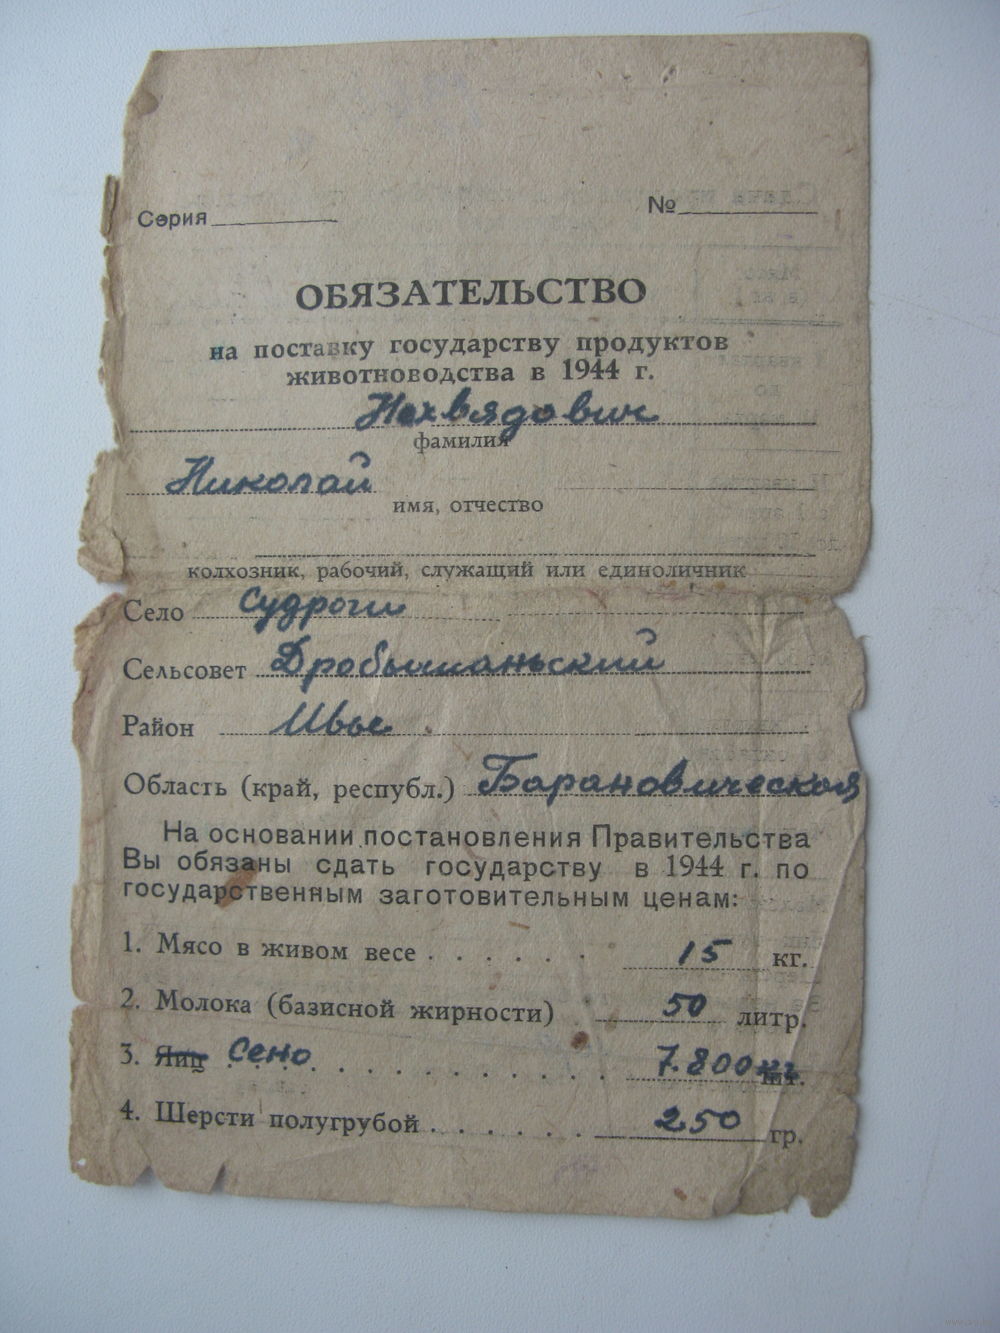 Серия
№
ОБЯЗАТЕЛЬСТВО
на поставку государству продуктов
животноводства в 1944 г.
Нехвядович
фамилия
Николай
имя, отчество
колхозник, рабочий, служащий или единоличник
Село Судроги
Сельсовет Дробышаньский
Район Ивье
Область (край, республ.) Барановическая
На основании постановления Правительства
Вы обязаны сдать государству в 1944 г. по
государственным заготовительным ценам:
1. Мясо в живом весе . . . . . . 15 кг.
2. Молока (базисной жирности) 50 литр.
3. Яиц Сено . . . . . . . . . . . . 7.800 кг шт.
4. Шерсти полугрубой . . . . . . 250 гр.